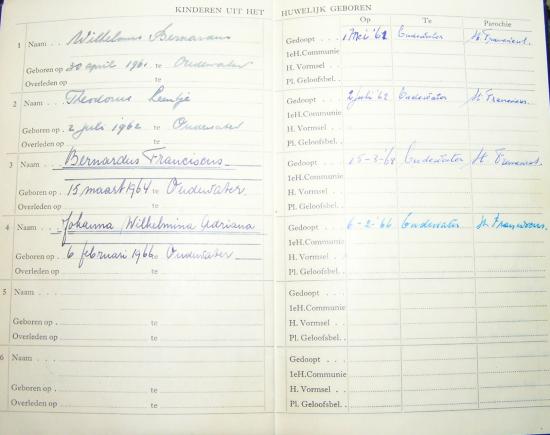 KINDEREN UIT HET HUWELIJK GEBOREN
Op Te Parochie
1 Naam . . . Wilhelmus Bernardus
Geboren op 30 april 1961 te Oudewater
Overleden op . te
Gedoopt . . 1 Mei '61 Oudewater St Franciscus.
1eH.Communie
H. Vormsel .
Pl. Geloofsbel.
2 Naam . . . Theodorus Leentje
Geboren op . 2 juli 1962 te Oudewater
Overleden op . te
Gedoopt . . 2 juli '62 Oudewater St Franciscus.
1eH.Communie
H. Vormsel .
Pl. Geloofsbel.
3 Naam . . . Bernardus Franciscus
Geboren op . 15 maart 1964 te Oudewater
Overleden op . te
Gedoopt . . 15-3-'64 Oudewater St Franciscus.
1eH.Communie
H. Vormsel .
Pl. Geloofsbel.
4 Naam . . . Johanna Wilhelmina Adriana
Geboren op . 6 februari 1966 te Oudewater
Overleden op . te
Gedoopt . . 6-2-'66 Oudewater St. Franciscus.
1eH.Communie
H. Vormsel .
Pl. Geloofsbel.
5 Naam . . .
Geboren op . te
Overleden op . te
Gedoopt . . .
1eH.Communie
H. Vormsel . .
Pl. Geloofsbel. .
6 Naam . . .
Geboren op . te
Overleden op . te
Gedoopt . . .
1eH.Communie
H. Vormsel . .
Pl. Geloofsbel. .